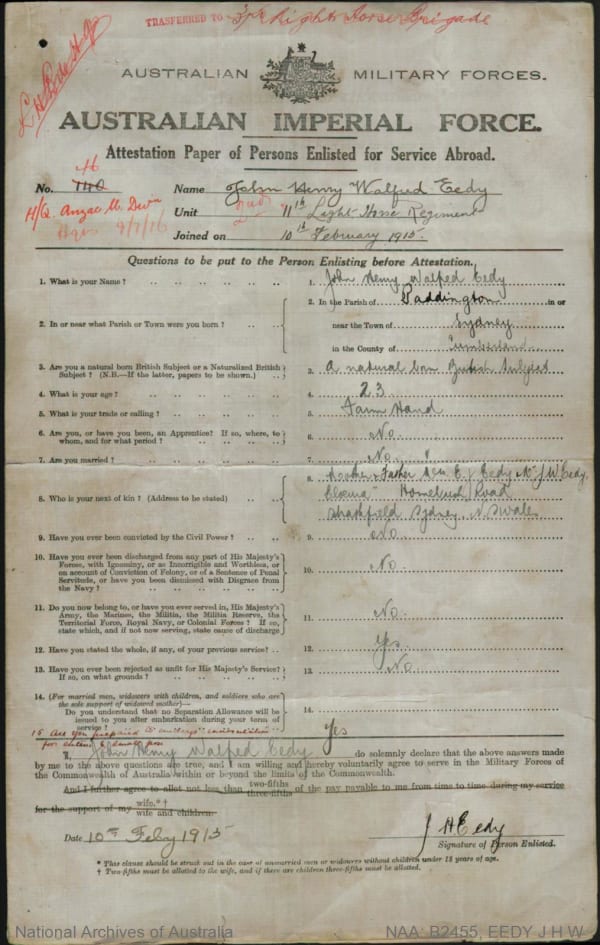 TRASFERED TO 3rd Light Horse Brigade
AUSTRALIAN MILITARY FORCES.
AUSTRALIAN IMPERIAL FORCE.
Attestation Paper of Persons Enlisted for Service Abroad.
No. 740 Name John Henry Walfred Eedy
H/Q. Anzac M. Divn Unit 11th Light Horse Regiment
9/7/16 Joined on 10th February 1915.
Questions to be put to the Person Enlisting before Attestation.
1. What is your Name? 1. John Henry Walfred Eedy
2. In or near what Parish or Town were you born? 2. In the Parish of Paddington in or
near the Town of Sydney
in the County of Cumberland
3. Are you a natural born British Subject or a Naturalized British
Subject? (N.B.—If the latter, papers to be shown.) 3. A natural born British Subject
4. What is your age? 4. 23
5. What is your trade or calling? 5. Farm Hand
6. Are you, or have you been, an Apprentice? If so, where, to
whom, and for what period? 6. No.
7. Are you married? 7. No. "
8. Who is your next of kin? (Address to be stated) 8. Mother & Father Mrs. E. Eedy Mr J. W. Eedy.
Homebush Road
Strathfield Sydney N.S Wales
9. Have you ever been convicted by the Civil Power? 9. No
10. Have you ever been discharged from any part of His Majesty's
Forces, with Ignominy, or as Incorrigible and Worthless, or
on account of Conviction of Felony, or of a Sentence of Penal
Servitude, or have you been dismissed with Disgrace from
the Navy? 10. No
11. Do you now belong to, or have you ever served in, His Majesty's
Army, the Marines, the Militia, the Militia Reserve, the
Territorial Force, Royal Navy, or Colonial Forces? If so,
state which, and if not now serving, state cause of discharge 11. No.
12. Have you stated the whole, if any, of your previous service? 12. Yes.
13. Have you ever been rejected as unfit for His Majesty's Service?
If so, on what grounds? 13. No
14. (For married men, widowers with children, and soldiers who are
the sole support of widowed mother)—
Do you understand that no Separation Allowance will be
issued to you after embarkation during your term of
service? 14.
15 Are you prepared to undergo inoculation Yes
I, John Henry Walfred Eedy do solemnly declare that the above answers made
by me to the above questions are true, and I am willing and hereby voluntarily agree to serve in the Military Forces of
the Commonwealth of Australia within or beyond the limits of the Commonwealth.
And I further agree to allot not less than two-fifths three-fifths of the pay payable to me from time to time during my service
for the support of my wife.* † wife and children.
Date 10th Feby 1915 J H Eedy
Signature of Person Enlisted.
* This clause should be struck out in the case of unmarried men or widowers without children under 18 years of age.
† Two-fifths must be allotted to the wife, and if there are children three-fifths must be allotted.
National Archives of Australia NAA: B2455, EEDY J H W